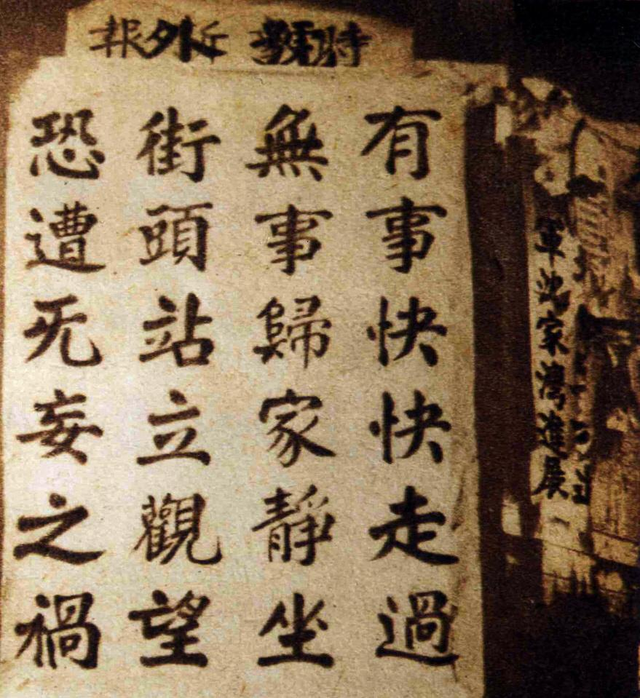 時號外報
有事快快走過
無事歸家靜坐
街頭站立觀望
恐遭旡妄之禍
軍沈家灣進展